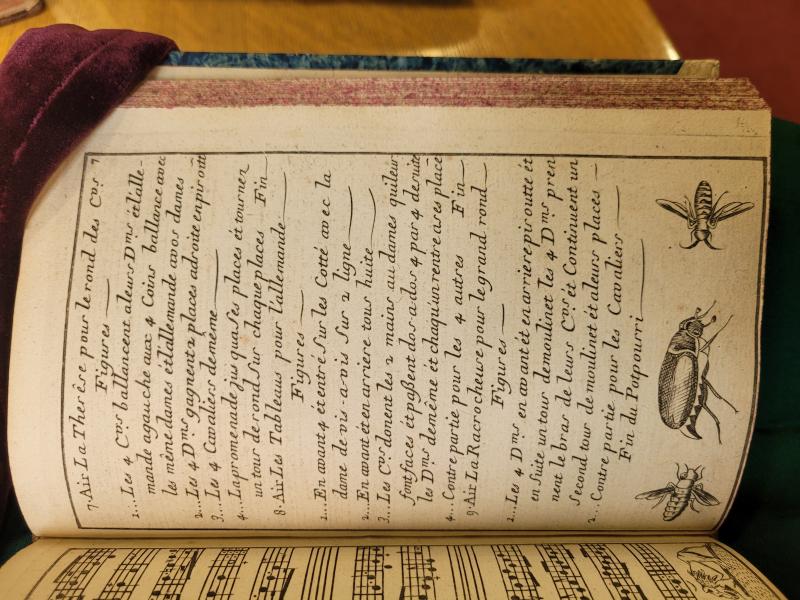 7.e Air La Therêre pour le rond des C.vrs 7
Figures
1... Les 4 C.vrs ballancent aleurs D.mes ét lalle-
mande agauche aux 4 Coins ballancé avec
les même dames ét lallemande avos dames
2... Les 4 D.mes gagnent 2 places adroite en pirouttt
3... Les 4 Cavaliers demême
4... La promenade jus quases places ét tournez
un tour de rond Sur chaque places Fin
8.e Air Les Tableaus pour l'allemande
Figures
1... En avant 4 ét entré Sur les Cotté avec la
dame de vis-a-vis Sur 2 ligne
2... En avant ét en arriere tous huite
3... Les C.vrs donent les 2 mains au dames quileur
font faces ét paßent dos a dos 4 par 4 de suite
les D.mes demême ét chaqu'un rentre a ses place
4... Contre partie pour les 4 autres Fin
9.e Air La Racrocheure pour le grand rond
Figures
1... Les 4 D.mes en avant ét en arriere piroutte ét
en Suite un tour demoulinet les 4 D.mes pren
nent le bras de leurs C.vrs ét Continuent un
Second tour de moulinet ét aleurs places
2... Contre partie pour les Cavaliers
Fin du Potpourri